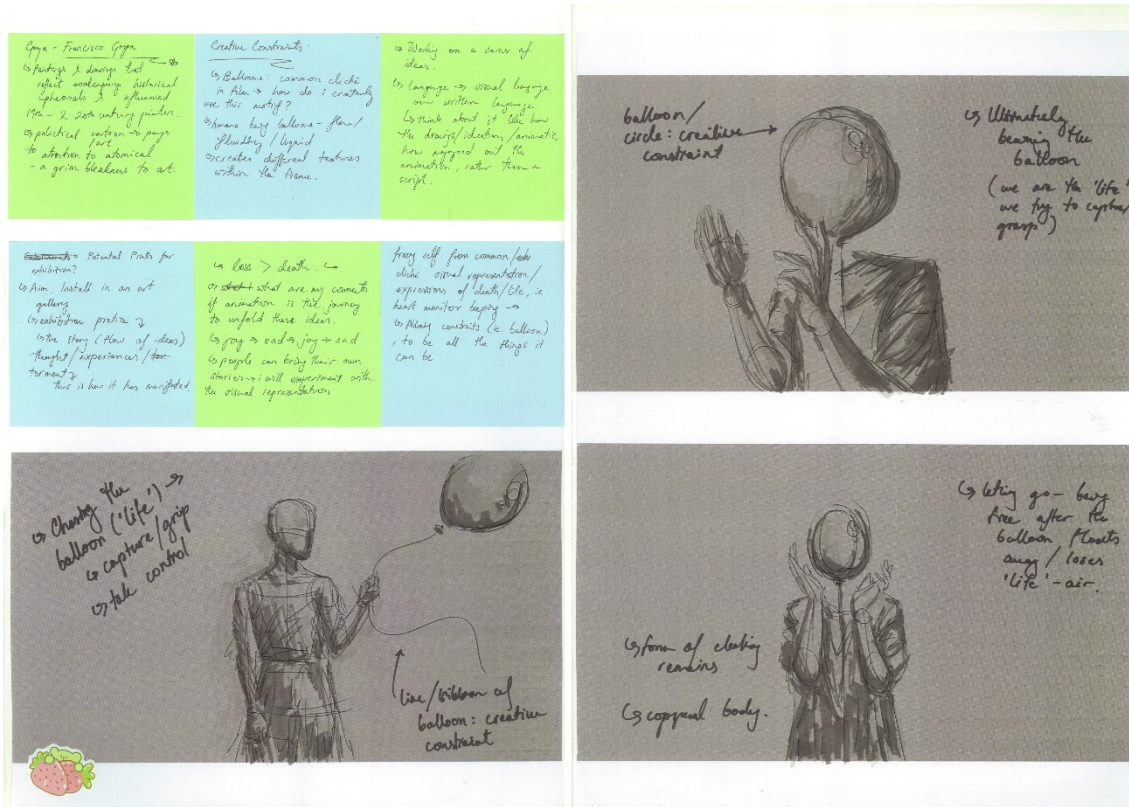 Goya - Francisco Goya
↳ Paintings & drawings that
reflect contemporary historical
upheavals & influenced
19th & 20th century painters.
↳ political cartoon → pays
/art
to attention to atomical
- a grim bleakness to art.
Creative Constraints:
↳ Balloons: common cliché
in film → how do i creatively
use this motif?
↳ humans being balloons - flow/
fluidity / liquid
↳ creates different textures
within the frame.
↳ Working on a series of
ideas.
↳ Language → visual language
over written language
↳ think about it like how
the drawings/ideation/animatic,
how mapped out the
animation, rather than a
script.
Potential Prints for
exhibition?
↳ Aim: Install in an art
gallery
↳ exhibition practice ↴
↳ the story (flow of ideas)
thought/experiences/
torment ↴
this is how it has manifested.
↳ loss > death.
or what are my comments
if animation is the journey
to unfold these ideas.
↳ joy → sad → joy → sad
↳ people can bring their own
stories → i will experiment with
the visual representation
freeing self from common/
cliché visual representation/
expressions of death/life, ie
heart monitor beeping →
↳ Allowing constraints (ie. balloon)
, to be all the things it
can be
↳ Chasing the
balloon ('life') →
↳ capture/grip
↳ take control
line/ribbon of
balloon: creative
constraint
balloon/
circle: creative
constraint
↳ Ultimately
becoming the
balloon
(we are the 'life'
we try to capture/
grasp)
↳ letting go - being
free after the
balloon floats
away / loses
'life' - air.
↳ form of clothing
remains
↳ corporeal body.